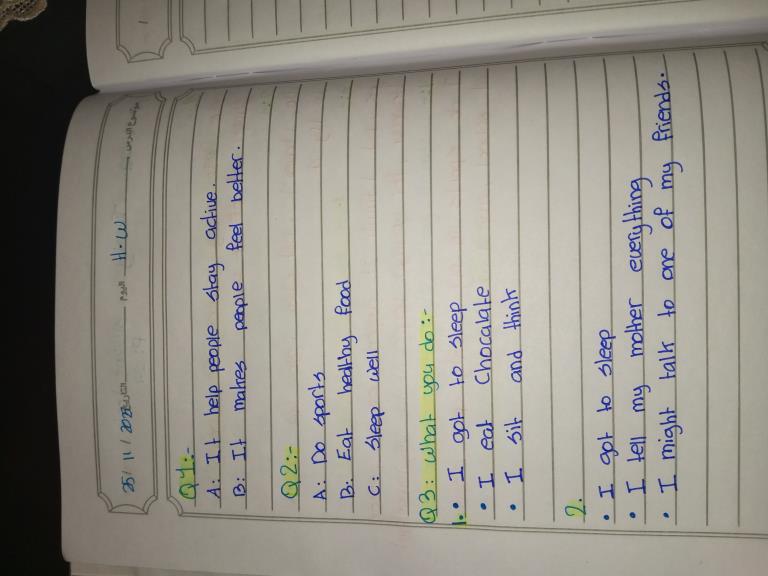 25/ 11 / 2022 التاريخ اليوم H.W موضوع الدرس
Q1:-
A: It help people stay active.
B: It makes people feel better.
Q2:-
A: Do sports
B: Eat healthy food
C: Sleep well
Q3: what you do:-
1. • I got to sleep
• I eat Chocalate
• I sit and think
2.
• I got to sleep
• I tell my mother everything
• I might talk to one of my friends.